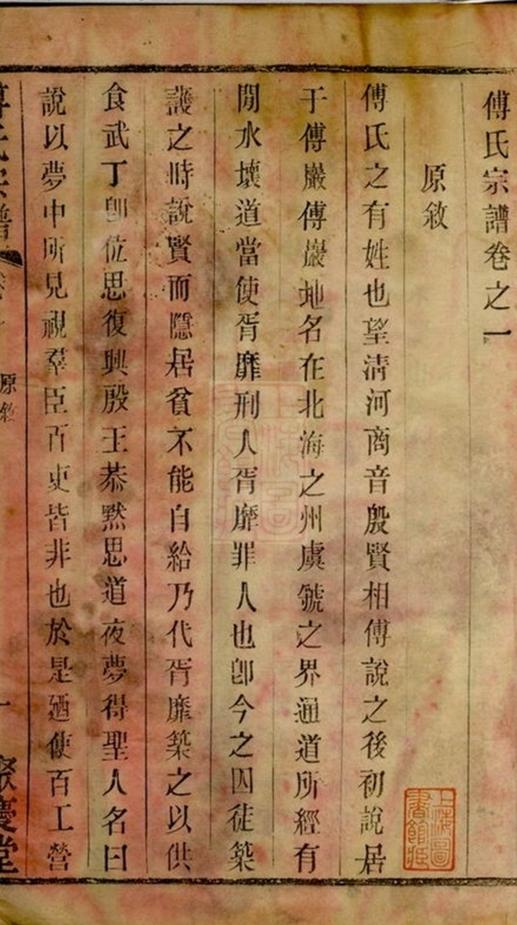 傅氏宗譜卷之一
原敘
傅氏之有姓也望清河商音殷賢相傅說之後初說居
于傅巖傅巖地名在北海之州虞虢之界通道所經有
閒水壞道當使胥靡刑人胥靡罪人也卽今之囚徒築
護之時說賢而隱居貧不能自給乃代胥靡築之以供
食武丁卽位思復興殷王恭默思道夜夢得聖人名曰
說以夢中所見視羣臣百吏皆非也於是廼使百工營
傅氏宗譜
原敘
一
聚慶堂
上海圖書館藏